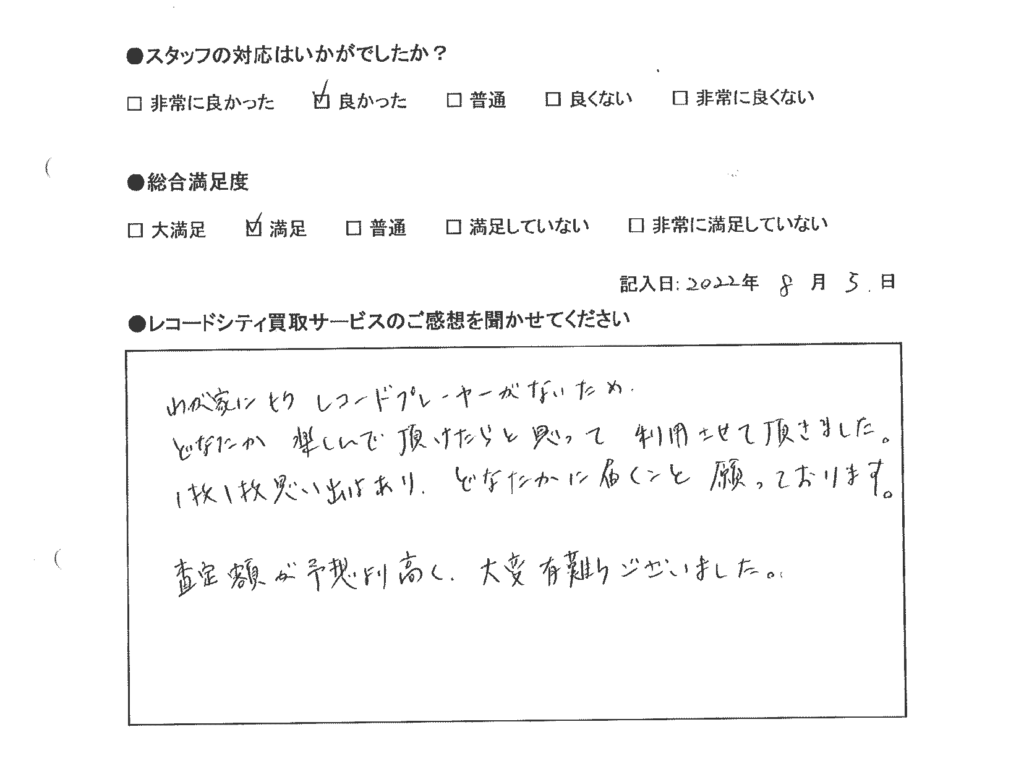 ●スタッフの対応はいかがでしたか？
□ 非常に良かった ☑ 良かった □ 普通 □ 良くない □ 非常に良くない
●総合満足度
□ 大満足 ☑ 満足 □ 普通 □ 満足していない □ 非常に満足していない
記入日: 2022年 8 月 5 日
●レコードシティ買取サービスのご感想を聞かせてください
わが家に レコードプレーヤーがないため、
どなたか 楽しんで頂けたらと思って 利用させて頂きました。
1枚1枚思い出はあり、どなたかに届くこと 願っております。
査定額が予想より高く、大変有難うございました。